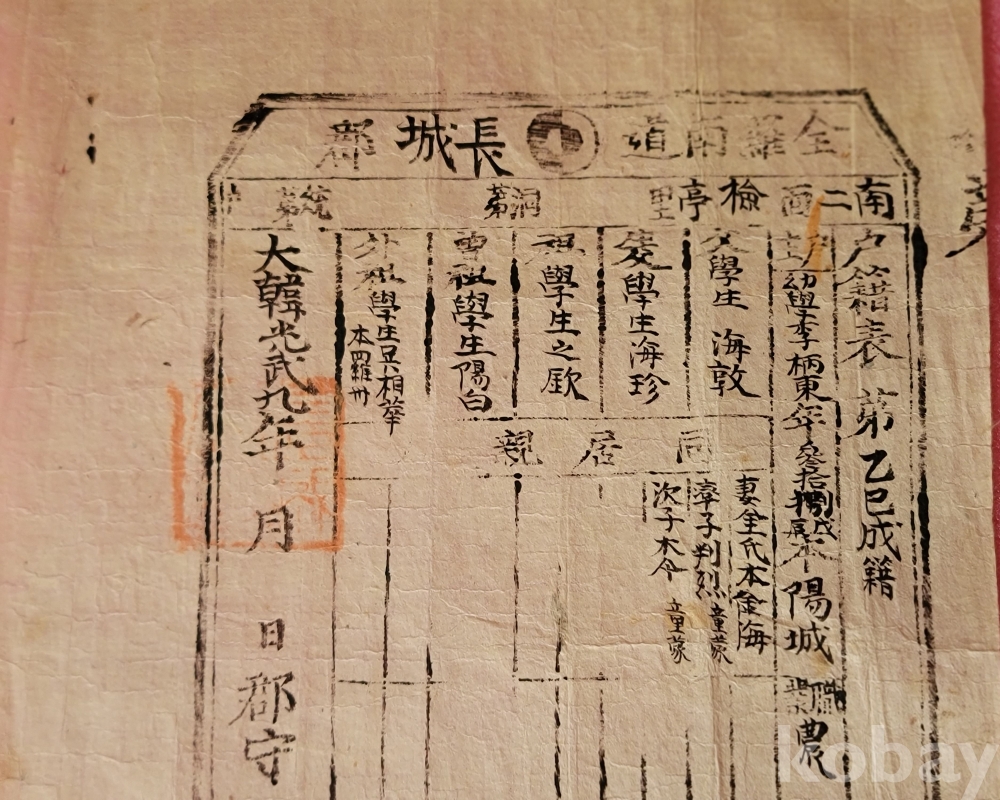 全羅南道 長城郡
南二面 檢亭里 洞第 統第 戶
戶籍表 第 乙巳成籍
幼學李柄東 年參拾捌 本陽城 職業農
父學生 海敦
生父學生海珍
祖學生之欽
曾祖學生陽白
外祖學生吳相華 本羅州
同居親
妻金氏本金海
率子判烈 童蒙
次子 童蒙
大韓光武九年 月 日 郡守
kobay